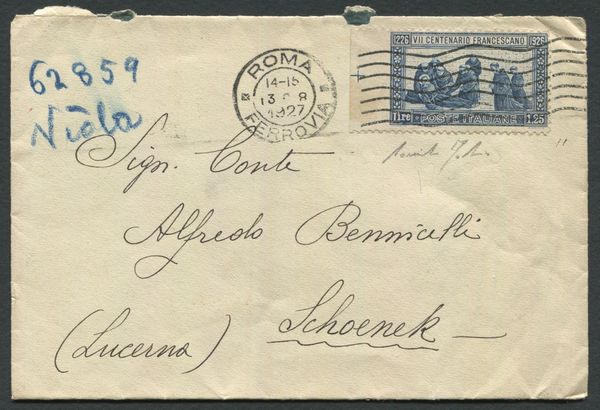 62859
Nida
ROMA
14-15
13 8
1927
FERROVIA
1226 VII CENTENARIO FRANCESCANO 1926
lire POSTE ITALIANE 1,25
Sign. Conte
Alfredo Bennicelli
Schoenek
(Lucerna)